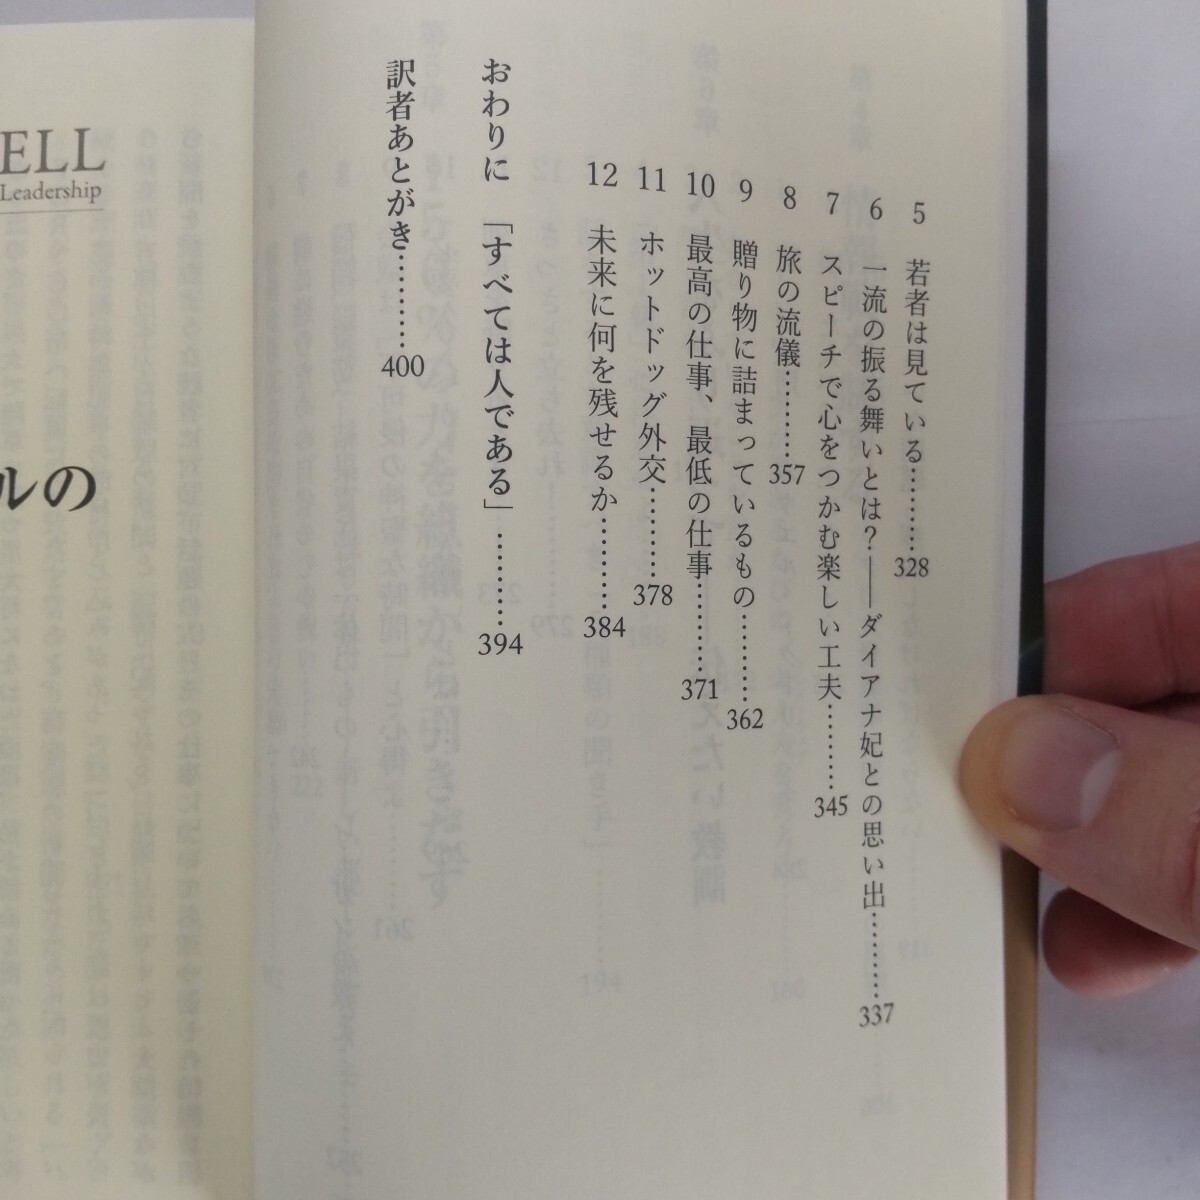 5 若者は見ている………… 328
6 一流の振る舞いとは？――ダイアナ妃との思い出………… 337
7 スピーチで心をつかむ楽しい工夫………… 345
8 旅の流儀………… 357
9 贈り物に詰まっているもの………… 362
10 最高の仕事、最低の仕事………… 371
11 ホットドッグ外交………… 378
12 未来に何を残せるか………… 384
おわりに 「すべては人である」………… 394
訳者あとがき………… 400
ELL
Leadership
ルの